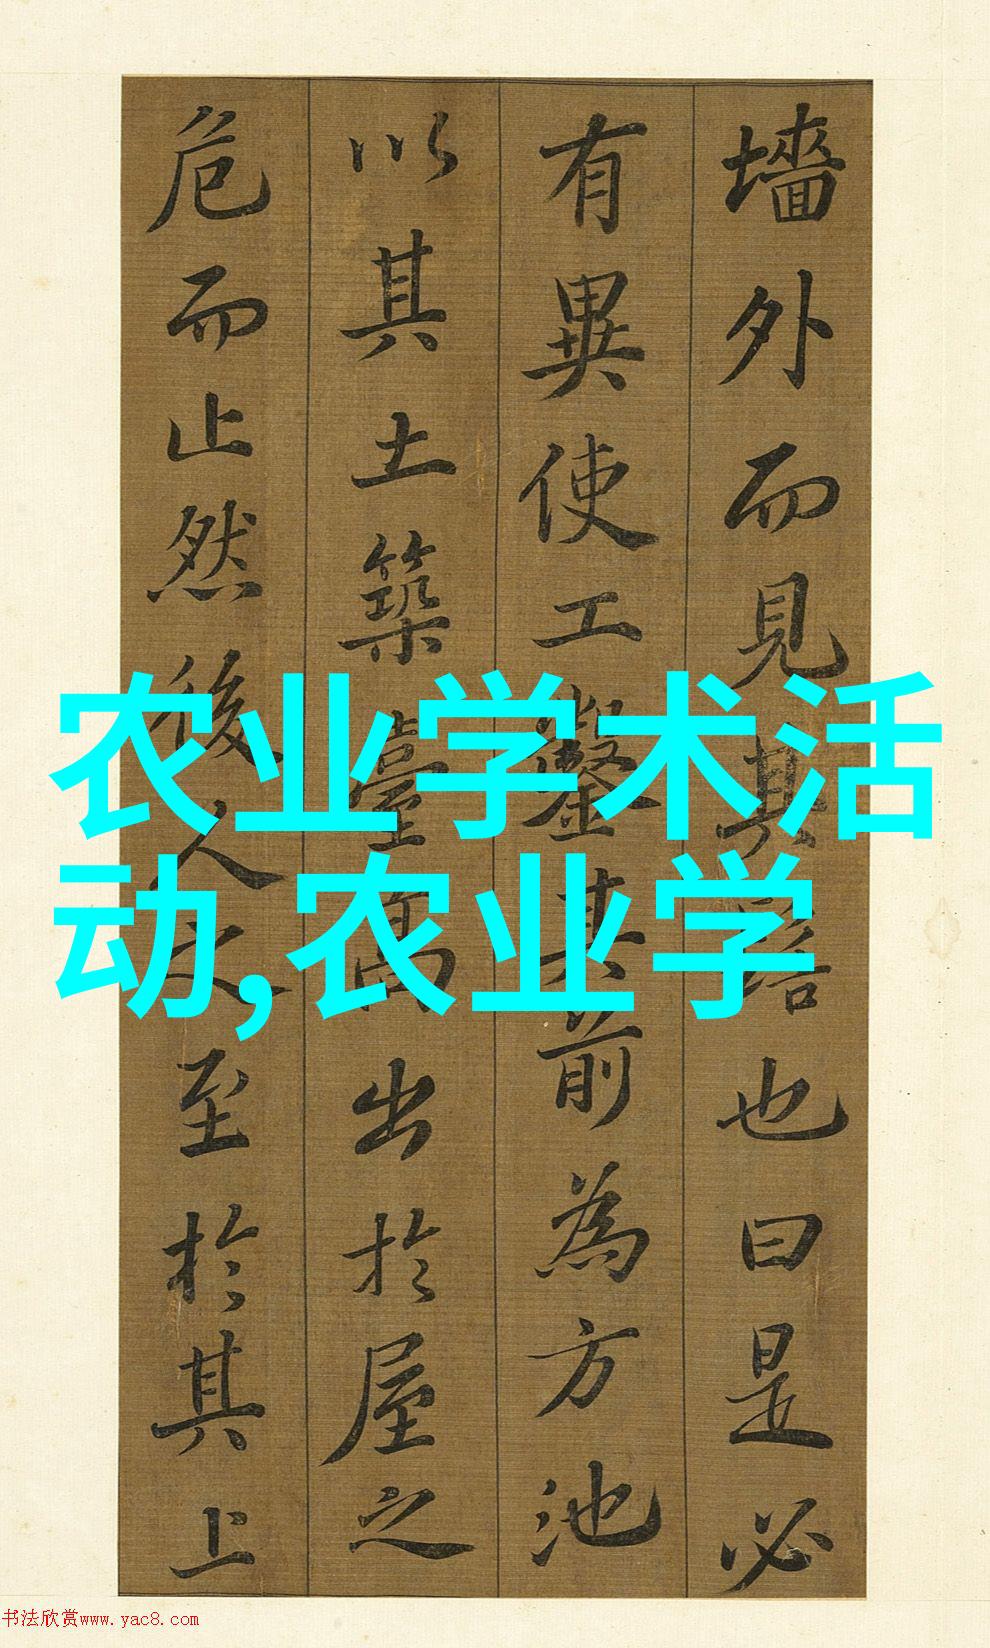 墻外而見其髻也曰是必
有異使工鑿其前為方池
以其土築臺高出於屋之
危而止然後人之至於其上
农业学术活
动,农业学
书法欣赏www.yac8.com